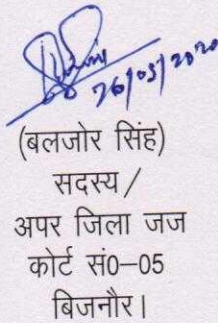 26/05/2020
(बलजोर सिंह)
सदस्य /
अपर जिला जज
कोर्ट सं0–05
बिजनौर।